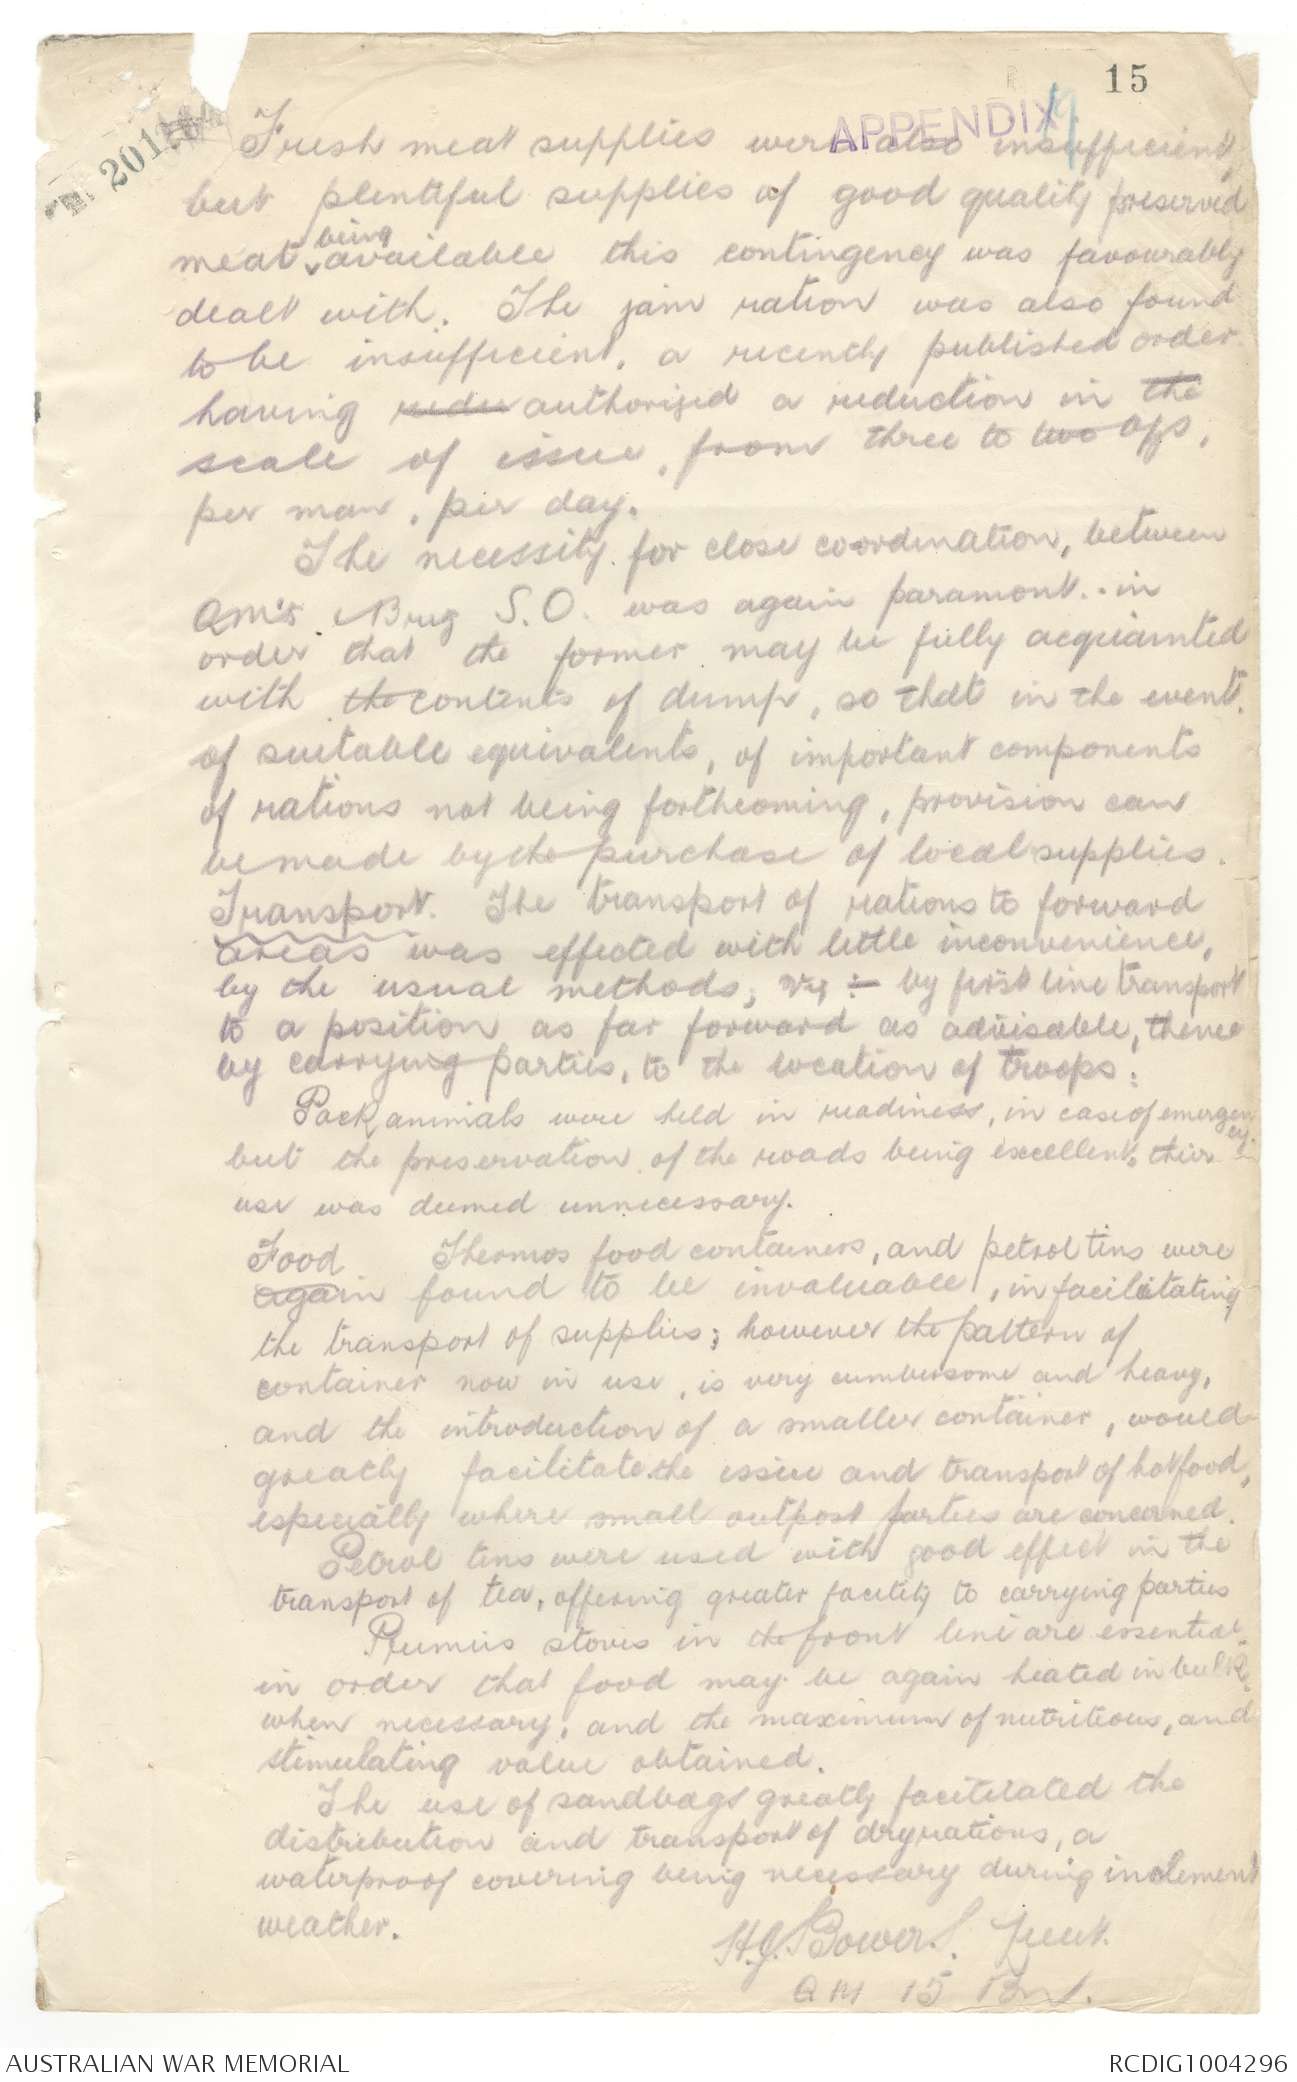 15
APPENDIX 19
Fresh meat supplies were also insufficient,
but plentiful supplies of good quality preserved
meat being available this contingency was favourably
dealt with. The jam ration was also found
to be insufficient, a recently published order
having redu authorized a reduction in the
scale of issue, from three to two ozs,
per man, per day.
The necessity for close coordination, between
QM's Brig S.O. was again paramont.. in
order that the former may be fully acquainted
with the contents of dump, so that in the event.
of suitable equivalents, of important components
of rations not being forthcoming, provision can
be made by the purchase of local supplies.
Transport. The transport of rations to forward
areas was effected with little inconvenience,
by the usual methods; viz :- by first line transport
to a position as far forward as advisable, thence
by carrying parties, to the location of troops.
Pack animals were held in readiness, in case of emergency.
but the preservation of the roads being excellent, their
use was deemed unnecessary.
Food Thermos food containers, and petrol tins were
again found to be invaluable, in facilitating
the transport of supplies; however the pattern of
container now in use, is very cumbersome and heavy,
and the introduction of a smaller container, would
greatly facilitate the issue and transport of hot food,
especially where small outpost parties are concerned.
Petrol tins were used with good effect in the
transport of tea, offering greater facility to carrying parties
Primus stoves in the front line are essential
in order that food may be again heated in bulk,
when necessary, and the maximum of nutritious, and
stimulating value obtained.
The use of sandbags greatly facilitated the
distribution and transport of dry rations, a
waterproof covering being necessary during inclement
weather.
H.J. Bowers. Lieut.
QM 15 Bn.
AUSTRALIAN WAR MEMORIAL
RCDIG1004296